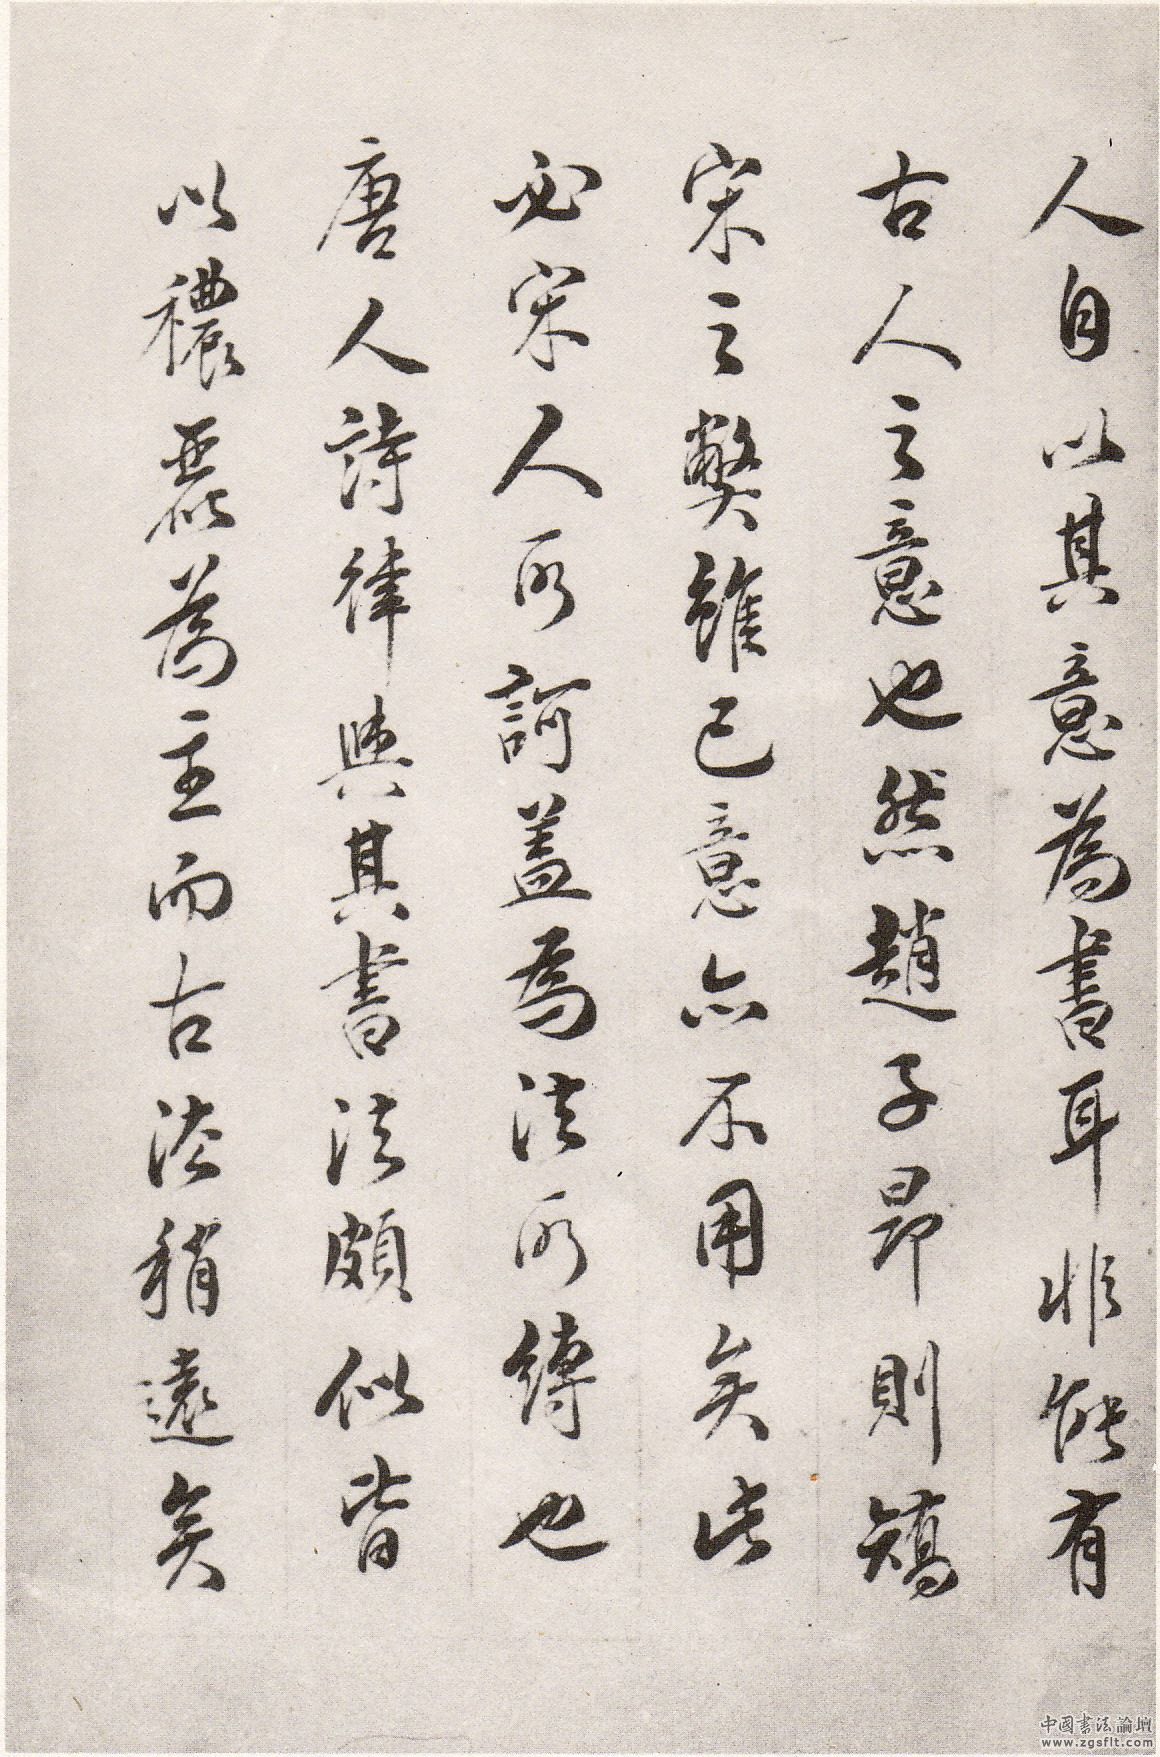 人自以其意為書耳非能有
古人之意也然趙子昂則矯
宋之弊雖己意亦不用矣此
必宋人所訶蓋為法所縛也
唐人詩律與其書法頗似皆
以穠麗為主而古法稍遠矣
中國書法論壇
www.zgsflt.com